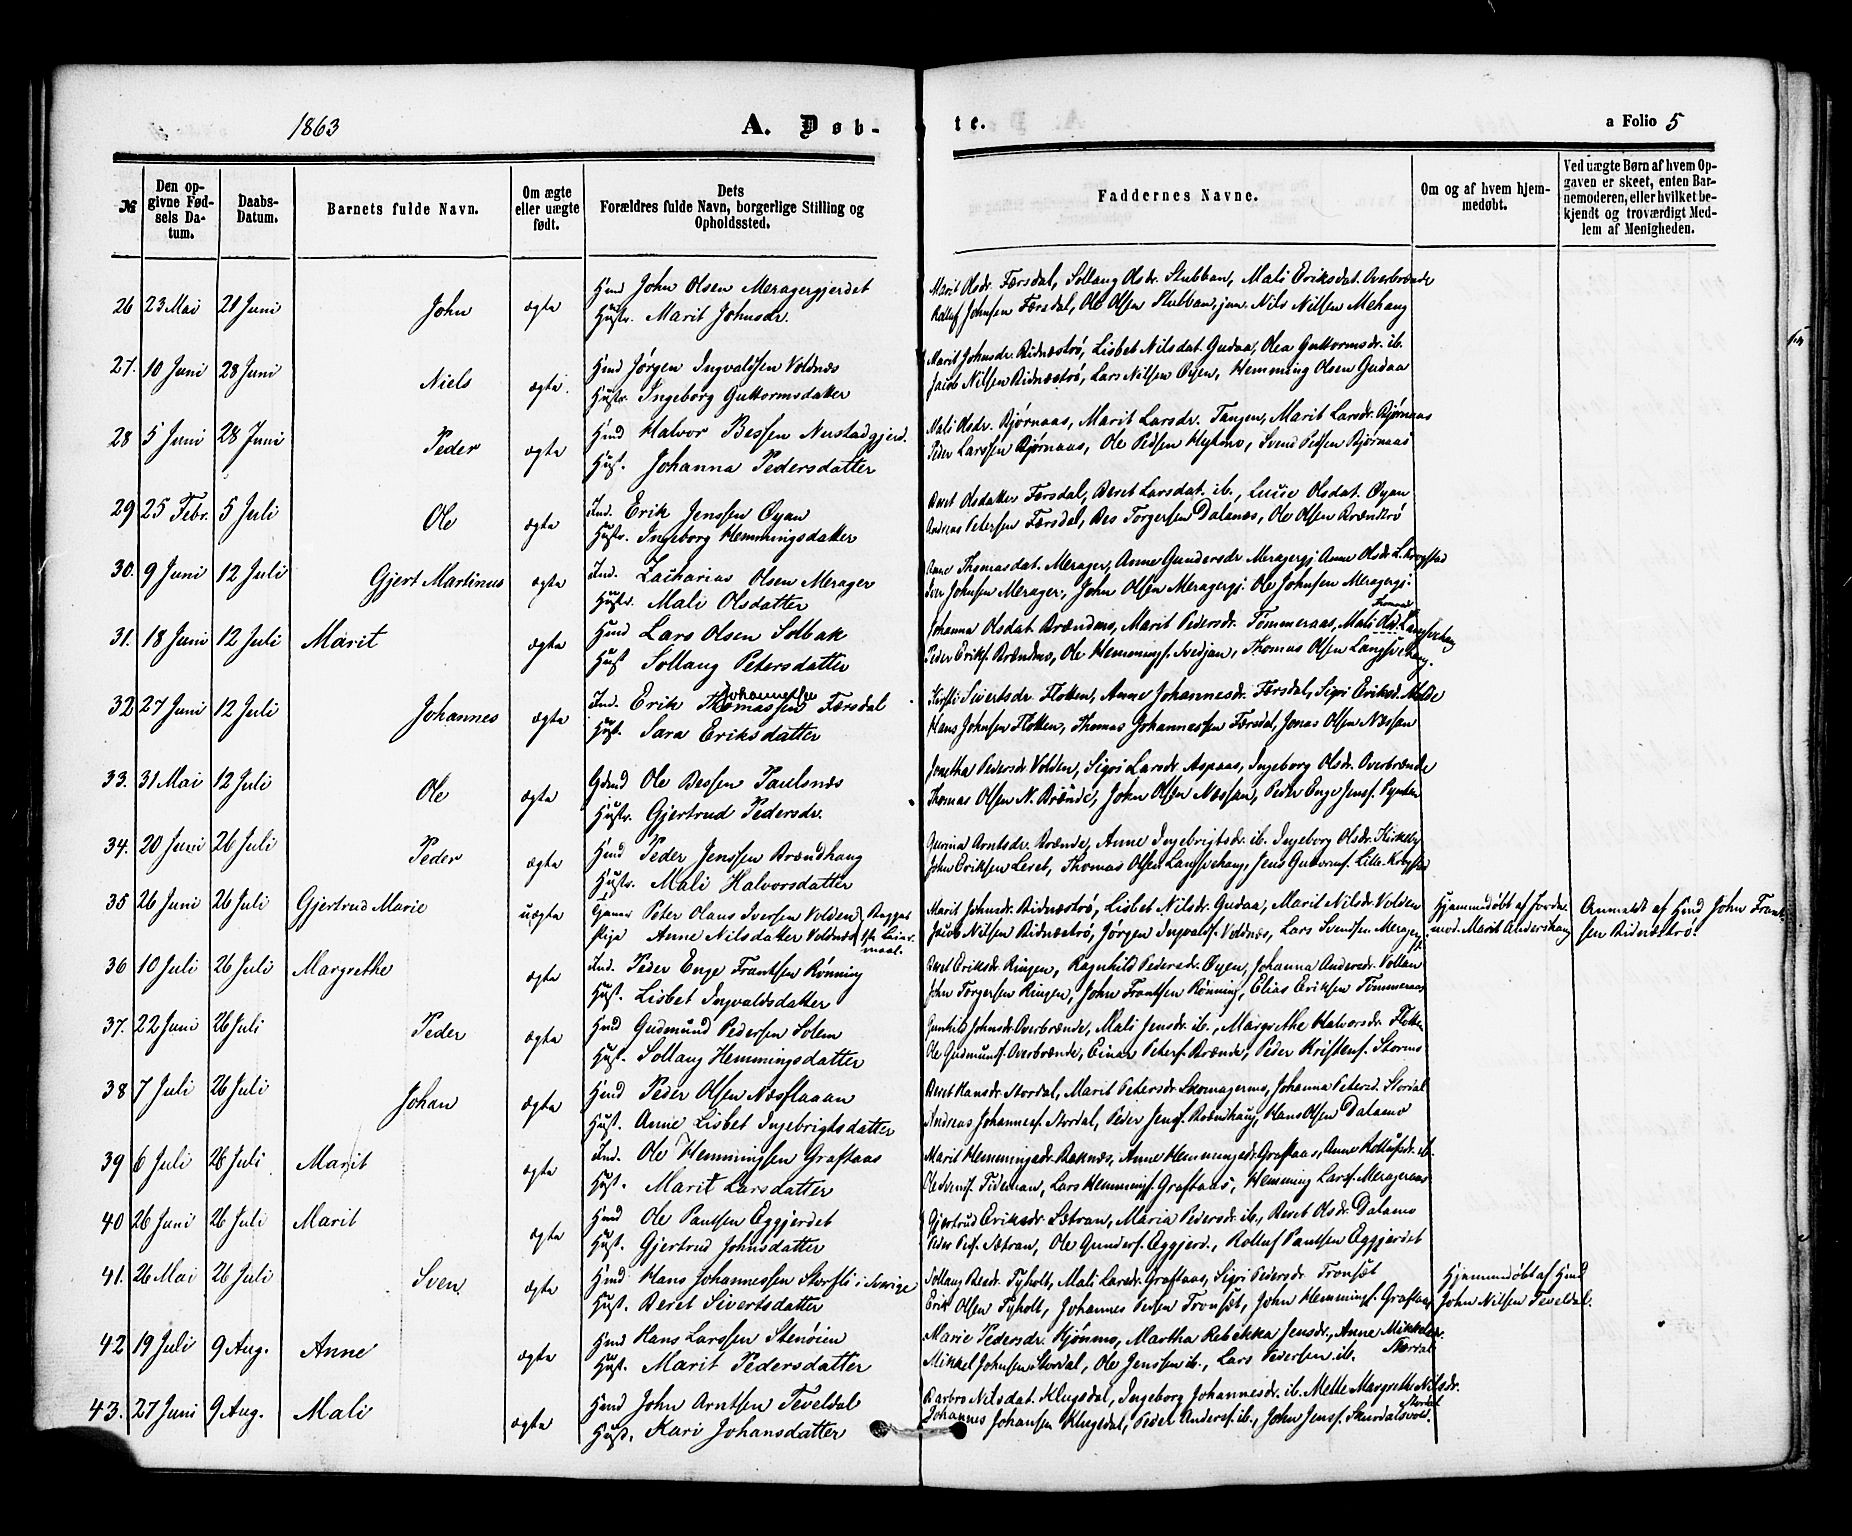 1863
A. Døb-
te.
a Folio 5
№
Den op-
givne Fød-
sels Da-
tum.
Daabs-
Datum.
Barnets fulde Navn.
Om ægte
eller uægte
født.
Dets
Forældres fulde Navn, borgerlige Stilling og
Opholdssted.
Faddernes Navne.
Om og af hvem hjem-
medøbt.
Ved uægte Børn af hvem Op-
gaven er skeet, enten Bar-
nemoderen, eller hvilket be-
kjendt og troværdigt Med-
lem af Menigheden.
26 23 Mai 21 Juni John ægte
Hmd John Olsen Meragergjerdet
Hustr. Marit Johnsdr.
Marit Olsdr. Færsdal, Sollaug Olsdr. Stubban, Mali Eriksdat. Overbrænde
Rolluf Johnsen Færsdal, Ole Olsen Stubban jun. Nils Nilsen Mehaug
27. 10 Juni 28 Juni Niels ægte.
Hmd Jørgen Ingvaldsen Voldnæs
Hustr. Ingeborg Guttormsdatter
Marit Johnsdr. Bidnæstrø, Lisbet Nilsdat. Gudaa, Olea Guttormsdr. ib.
Jacob Nilsen Bidnæstrø, Lars Nilsen Øyen, Hemming Olsen Gudaa
28 5 Juni 28 Juni Peder ægte
Hmd Halvor Bessen Nustadgjerd.
Hust. Johanna Pedersdatter
Mali Olsdr. Bjørnaas, Marit Larsdr. Tangen, Marit Larsdr. Bjørnaas
Peder Larssen Bjørnaas, Ole Pedsen Hykmo, Svend Pedsen Bjørnaas
29 25 Febr. 5 Juli Ole ægte
Ind. Erik Jenssen Øyan
Hustr. Ingeborg Hemmingsdatter
Beret Olsdatter Færsdal, Beret Larsdat. ib., Luise Olsdat. Øyan
Andreas Petersen Færsdal, Bes Torgersen Dalanæs, Ole Olsen Brændtrø
30. 9 Juni 12 Juli Gjert Martinus ægte
Ind. Zacharias Olsen Merager
Hustr. Mali Olsdatter
Anne Thomasdat. Merager, Anne Gundersdr Meragergj. Anne Olsdr. L. Krogstad
Iver Johnsen Merager, John Olsen Meragergj. Ole Johnsen Meragergj.
31. 18 Juni 12 Juli Marit ægte
Hmd Lars Olsen Solbak
Hust Sollaug Petersdatter
Thomas
Johanna Olsdat Brændmo, Marit Pedersdr. Tømmeraas, Mali Olsd. Langsvehaug
Peder Eriks. Brændmo, Ole Hemmings. Svedjan, Thomas Olsen Langsvehaug.
32 27 Juni 12 Juli Johannes ægte
Johannesse
Ind. Erik Thomassen Færsdal
Hust. Sara Eriksdatter
Kirsti Sivertsdr. Floken, Anne Johannesdr. Færsdal, Sigri Eriksd. Molde
Hans Johnsen Floken, Thomas Johannessen Færsdal, Jonas Olsen Næssan
33. 31 Mai 12 Juli Ole ægte
Gdmd Ole Bessen Paulsnæs
Hustr. Gjertrud Pedersdr.
Jonetha Pedersdr Volden, Sigri Larsdr. Aspaas, Ingeborg Olsdr. Overbrænde
Thomas Olsen N. Brænde, John Olsen Næssan, Peder Enge Jens. Pynten
34. 20 Juni 26 Juli Peder ægte
Hmd Peder Jenssen Brændhaug
Hustr. Mali Halvorsdatter
Gurina Arntsdr. Brænde, Anne Ingebrigtsdr. ib. Ingeborg Olsdr. Kirkeby
John Eriksen Leret, Thomas Olsen Langsvehaug, Jens Guttorms. Lille-Krogstad
35 26 Juni 26 Juli Gjertrud Marie uægte
Tjener Peter Olaus Iversen Volden Begges
Pige Anne Nilsdatter Voldnæs 1ste Leier-
maal.
Marit Johnsdr. Bidnæstrø, Lisbet Nilsdr. Gudaa, Marit Nilsdr. Volden
Jacob Nilsen Bidnæstrø, Jørgen Ingvalds. Voldnæs, Lars Svendsen Merager
Hjemmedøbt af Jorde-
mod. Marit Andershaug
Anmeldt af Hmd John Frant-
sen Bidnæstrø.
36 10 Juli 26 Juli Margrethe ægte
Ind. Peder Enge Frantsen Rønning
Hust. Lisbet Ingvaldsdatter
Beret Eriksdr. Ringen, Ragnhild Pedersdr. Øyen, Johanna Andersdr. Vollan
John Torgersen Ringen, John Frantsen Rønning, Elias Eriksen Tømmeraas
37. 22 Juni 26 Juli Peder ægte
Hmd Gudmund Pedersen Solem
Hust. Sollaug Hemmingsdatter
Gunhild Johnsdr. Overbrænde, Mali Jensdr. ib., Margrethe Halvorsdr. Floken
Ole Gudmunds. Overbrænde, Einar Peters. Brænde, Peder Kristens. Stormo
38 7 Juli 26 Juli Johan ægte
Hmd Peder Olsen Næsslaaan
Hust. Anne Lisbet Ingebrigtsdatter
Beret Hansdr. Stordal, Marit Petersdr. Skomagermo, Johanna Petersd. Stordal
Andreas Johannes. Stordal, Peder Jens. Brændhaug, Hans Olsen Dalamo
39 6 Juli 26 Juli Marit ægte
Ind. Ole Hemmingsen Graftaas
Hust. Marit Larsdatter
Marit Hemmingsdr. Baknæs, Anne Hemmingsdr. Graftaas, Anne Rollufsdr. ib.
Ole Tideman, Lars Hemmings. Graftaas, Hemming Lars. Merageraas
40 26 Juni 26 Juli Marit ægte
Hmd Ole Pantsen Eggjerdet
Hust. Gjertrud Johnsdatter
Gjertrud Eriksdr. Sætran, Maria Pedersdr. ib., Beret Olsdr. Dalamo
Peder Peds. Sætran, Ole Gunders. Eggjerd., Rolluf Pantsen Eggjerdet
41. 26 Mai 26 Juli Sven ægte
Hmd Hans Johannessen Storfli i Sverige
Hust. Beret Sivertsdatter
Sollaug Besdr. Tyholt, Mali Larsdr. Graftaas, Sigri Pedersdr. Tronsæt
Erik Olsen Tyholt, Johannes Persen Tronsæt, John Hemmings. Graftaas
Hjemmedøbt af Hmd
John Nilsen Teveldal.
42 19 Juli 9 Aug. Anne ægte
Hmd Hans Larssen Stenøien
Hust. Marit Pedersdatter
Marie Pedersdr. Kjønmo, Martha Rebekka Jensdr., Anne Mikkelsdr.
Mikkel Johnsen Stordal, Ole Jenssen ib., Lars Pedersen ib. Stordal
43. 27 Juni 9 Aug. Mali ægte
Hmd John Arntsen Teveldal
Hust. Kari Johansdatter
Barbro Nilsdat. Klugsdal, Ingeborg Johannesdr. ib. Mette Margrethe Nilsdr.
Stordal
Johannes Johansen Klugsdal, Peder Anders. ib., John Jens. Skurdalsvold